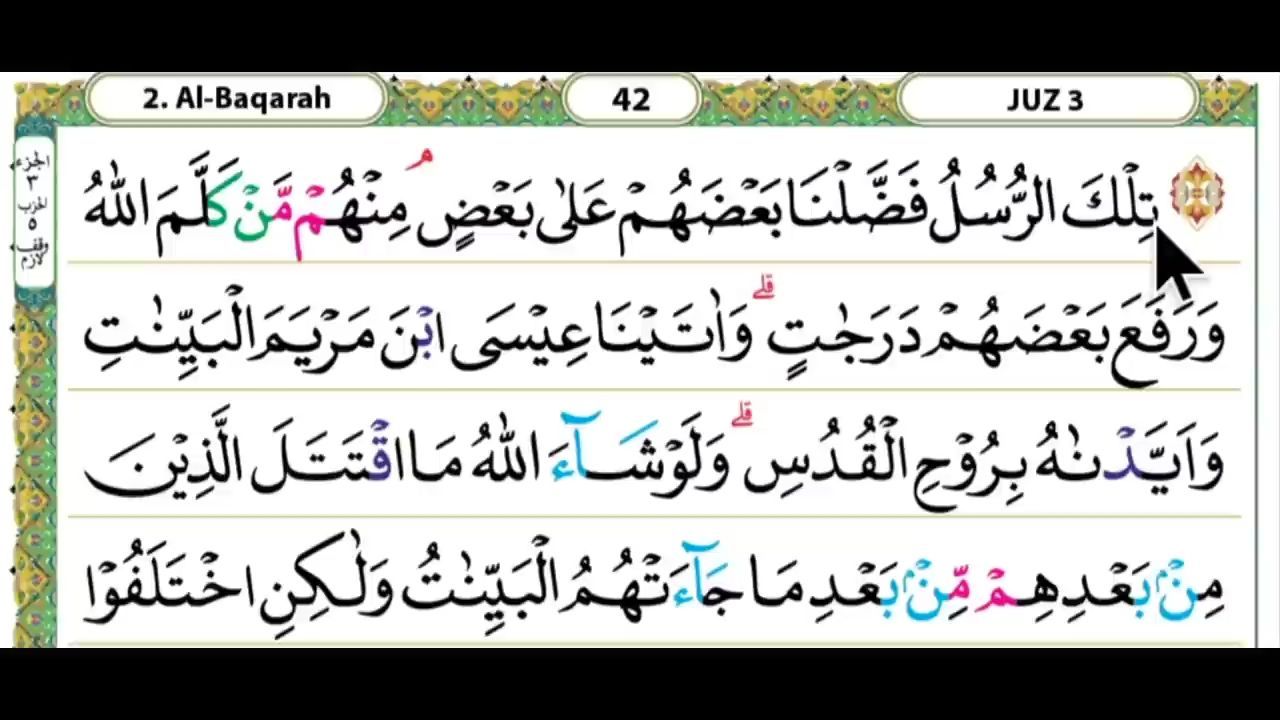 2. Al-Baqarah
42
JUZ 3
الجزء
٣
الحزب
٥
وقف
لازم
تِلْكَ الرُّسُلُ فَضَّلْنَا بَعْضَهُمْ عَلٰى بَعْضٍ ۘ مِنْهُمْ مَّنْ كَلَّمَ اللّٰهُ
وَرَفَعَ بَعْضَهُمْ دَرَجٰتٍ ۗ وَاٰتَيْنَا عِيْسَى ابْنَ مَرْيَمَ الْبَيِّنٰتِ
وَاَيَّدْنٰهُ بِرُوْحِ الْقُدُسِ ۗ وَلَوْ شَاۤءَ اللّٰهُ مَا اقْتَتَلَ الَّذِيْنَ
مِنْۢ بَعْدِهِمْ مِّنْۢ بَعْدِ مَا جَاۤءَتْهُمُ الْبَيِّنٰتُ وَلٰكِنِ اخْتَلَفُوْا